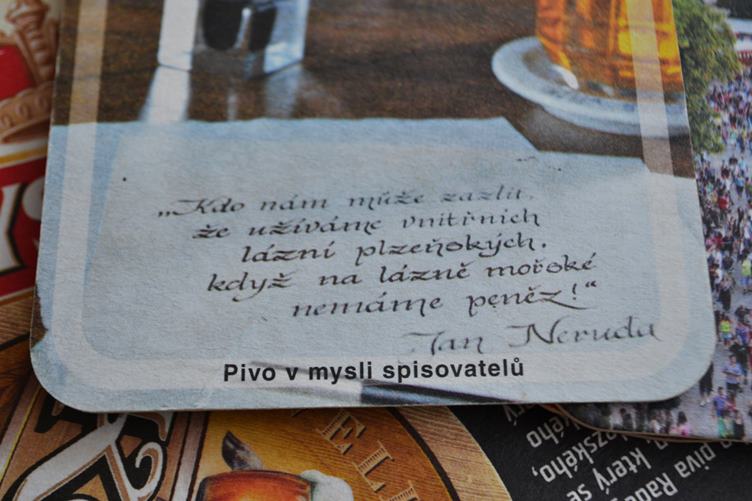 „Kdo nám může zazlít,
že užíváme vnitřních
lázní plzeňských,
když na lázně mořské
nemáme peněz!“
Jan Neruda
Pivo v mysli spisovatelů
piva
který se